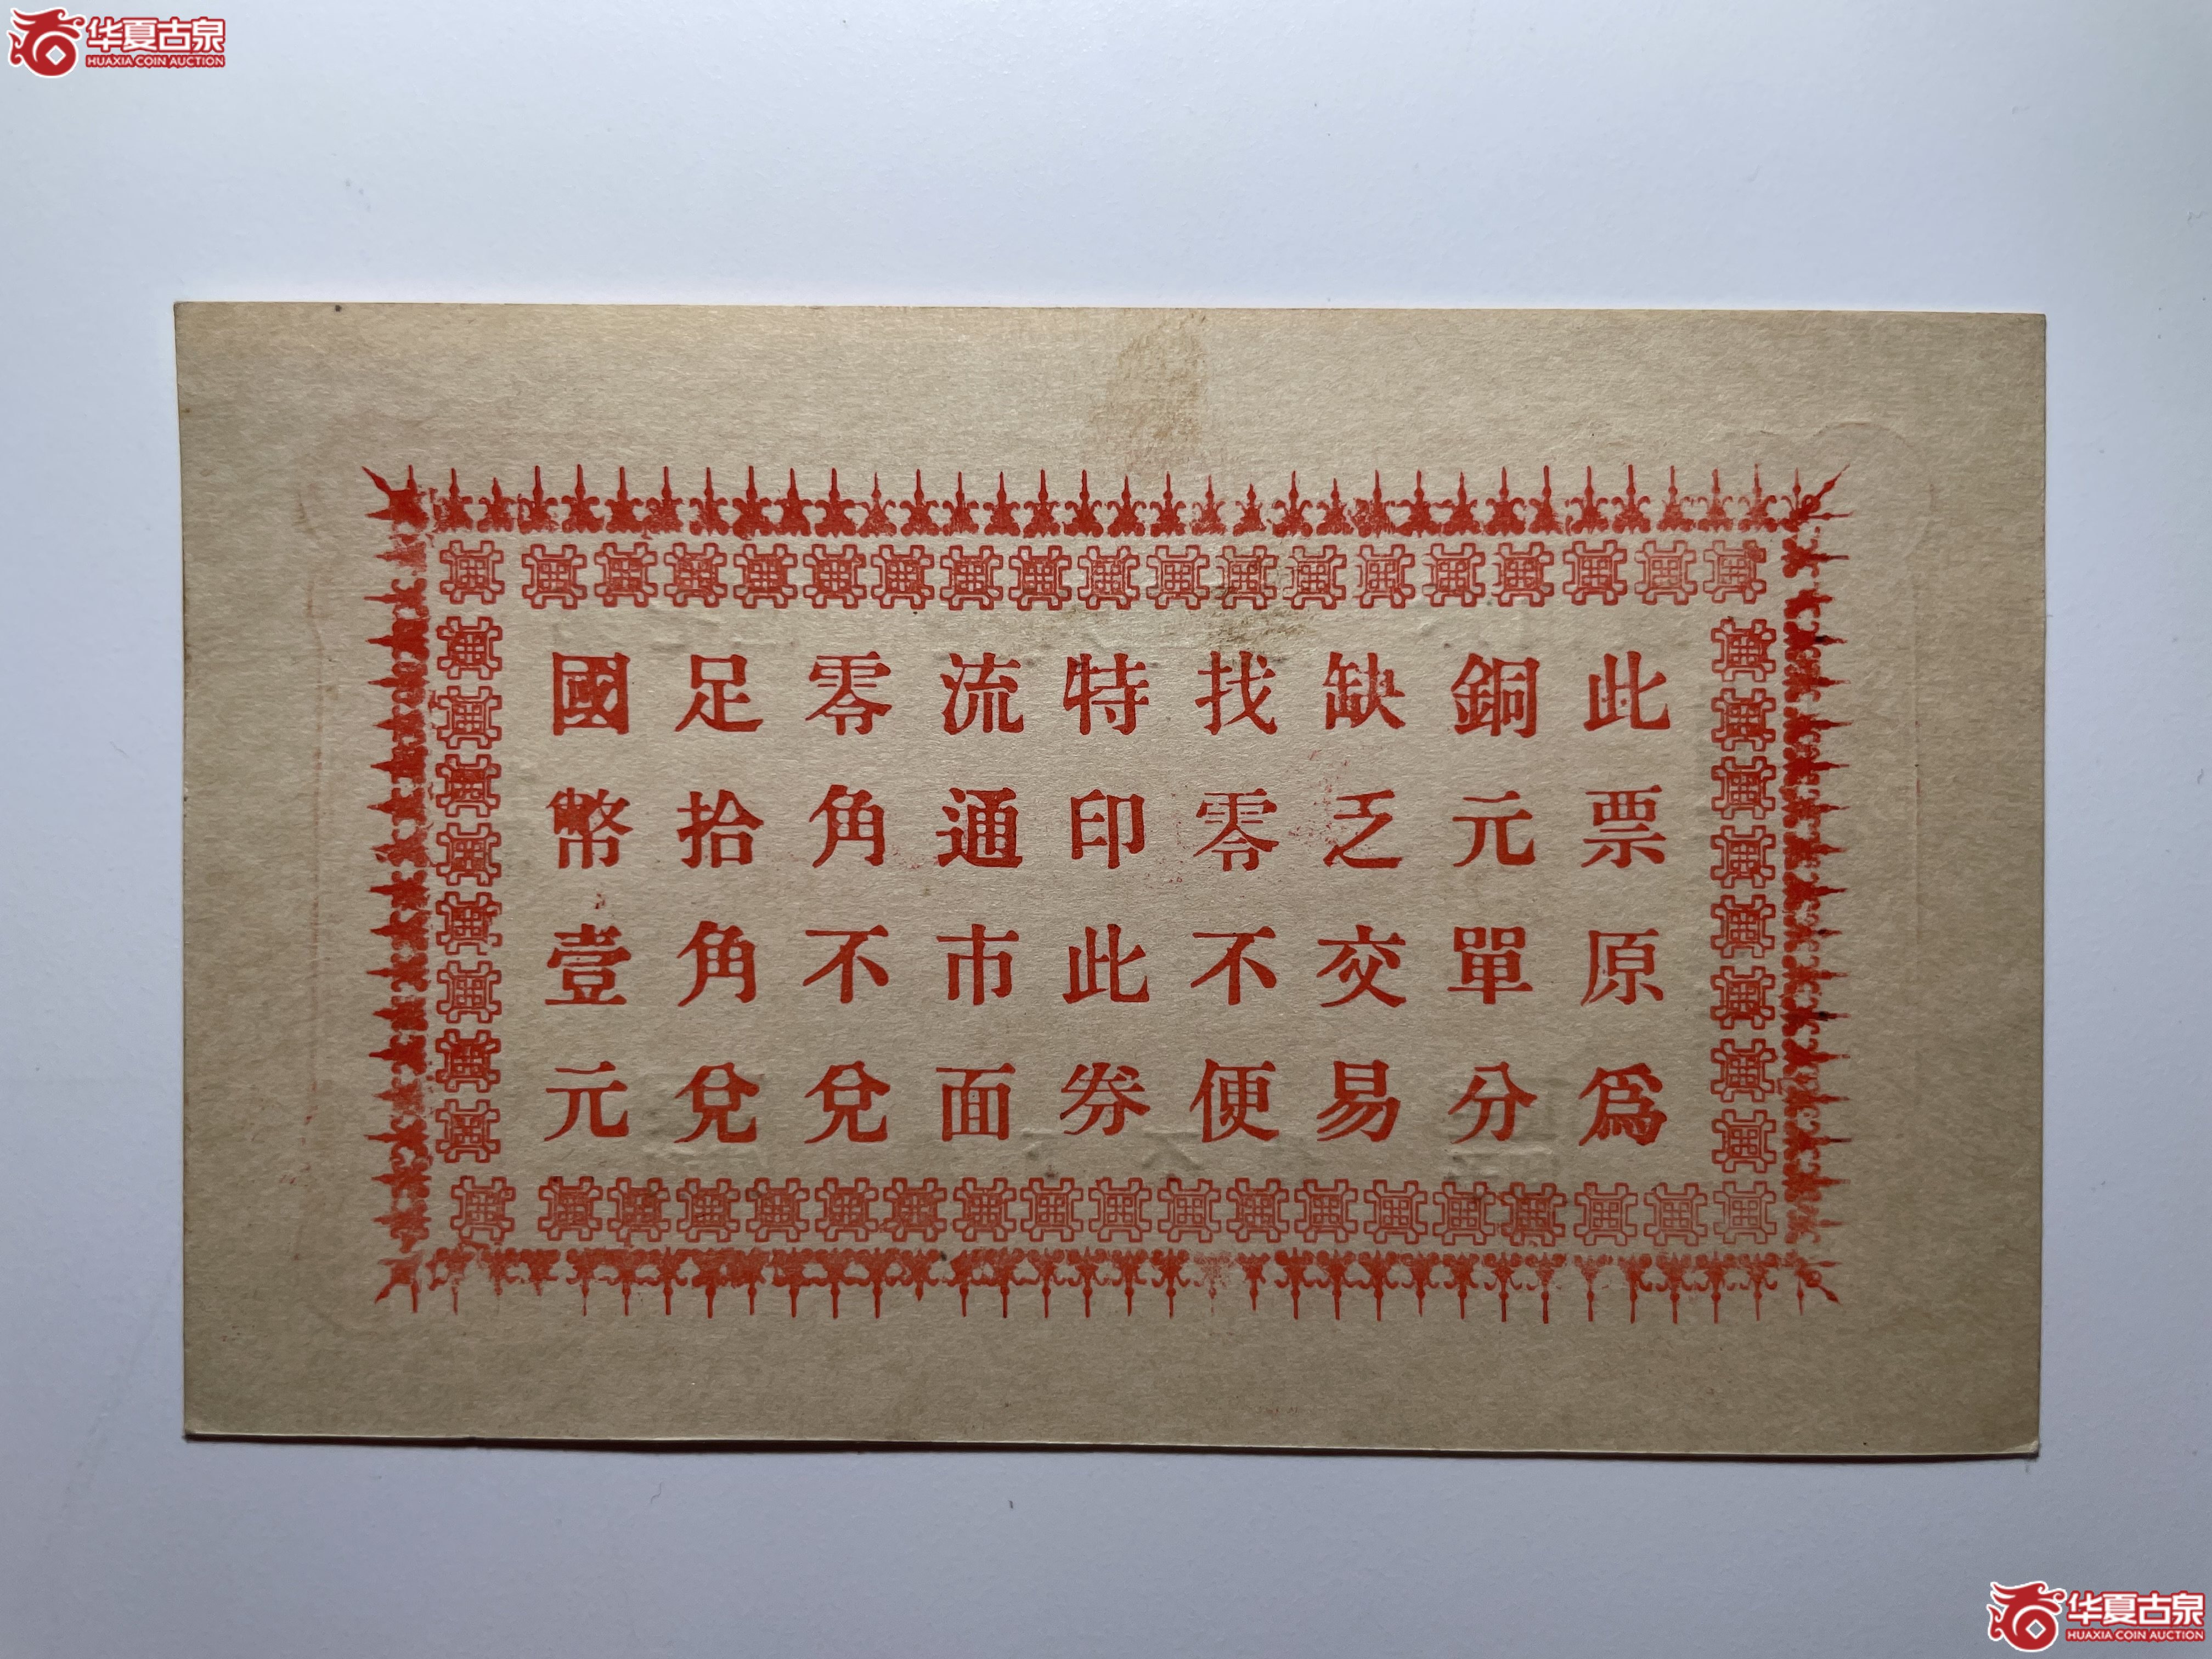 华夏古泉
HUAXIA COIN AUCTION
此票原爲
銅元單分
缺乏交易
找零不便
特印此券
流通市面
零角不兌
足拾角兌
國幣壹元
华夏古泉
HUAXIA COIN AUCTION